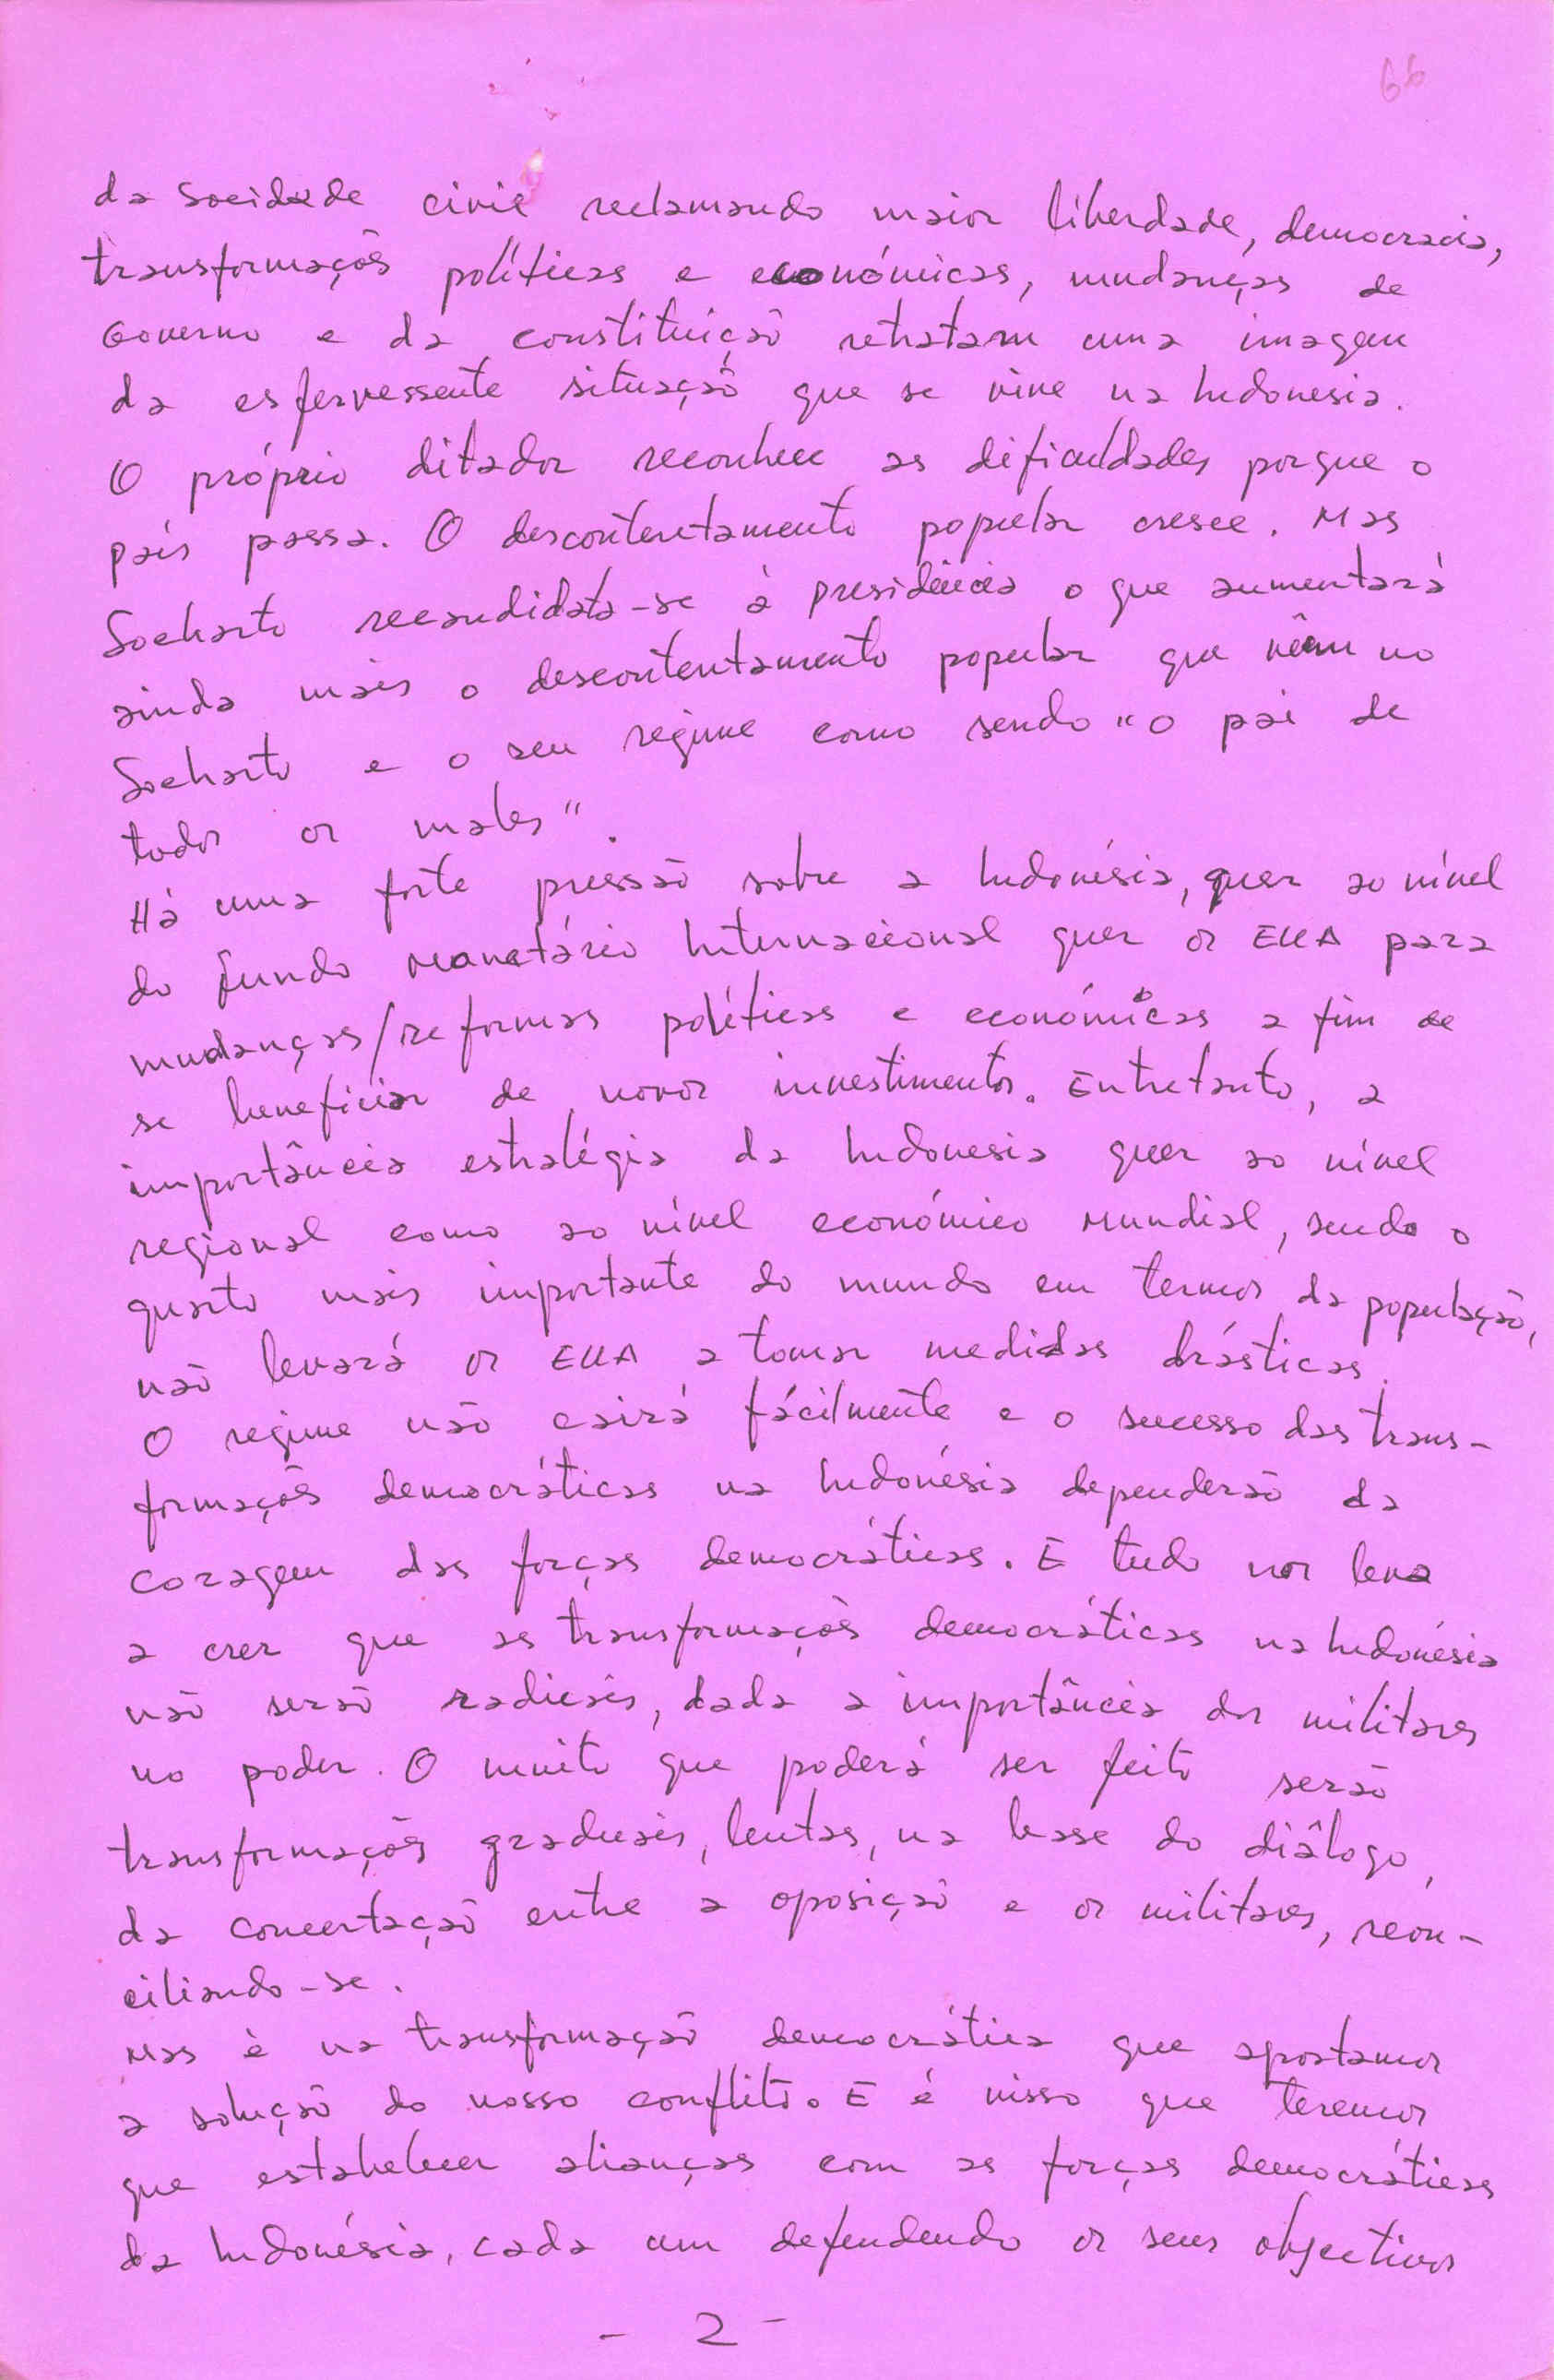 66
da Sociedade civil reclamando maior liberdade, democracia,
transformações políticas e económicas, mudanças de
Governo e da constituição retratam uma imagem
da esfervessente situação que se vive na Indonesia.
O próprio ditador reconhece as dificuldades porque o
país passa. O descontentamento popular cresce. Mas
Soeharto recandidata-se à presidência o que aumentará
ainda mais o descontentamento popular que vêem no
Soeharto e o seu regime como sendo "o pai de
todos os males".
Há uma forte pressão sobre a Indonésia, quer ao nível
do fundo Monetário Internacional quer os EUA para
mudanças/reformas políticas e económicas a fim de
se beneficiar de novos investimentos. Entretanto, a
importância estratégia da Indonesia quer ao nível
regional como ao nível económico Mundial, sendo o
quarto mais importante do mundo em termos da população,
não levará os EUA a tomar medidas drásticas.
O regime não cairá fácilmente e o sucesso das trans-
formações democráticas na Indonésia dependerão da
coragem das forças democráticas. E tudo nos leva
a crer que as transformações democráticas na Indonésia
não serão radicais, dada a importância dos militares
no poder. O muito que poderá ser feito serão
transformações graduais, lentas, na base do diálogo,
da concertação entre a oposição e os militares, recon-
ciliando-se.
Mas é na transformação democrática que apostamos
a solução do nosso conflito. E é nisso que teremos
que estabelecer alianças com as forças democráticas
da Indonésia, cada um defendendo os seus objectivos
- 2 -